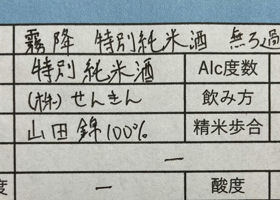 霧降 特別純米酒 無ろ過
特別純米酒 Alc度数
(株)せんきん 飲み方
山田錦100% 精米歩合
ー
度 ー 酸度